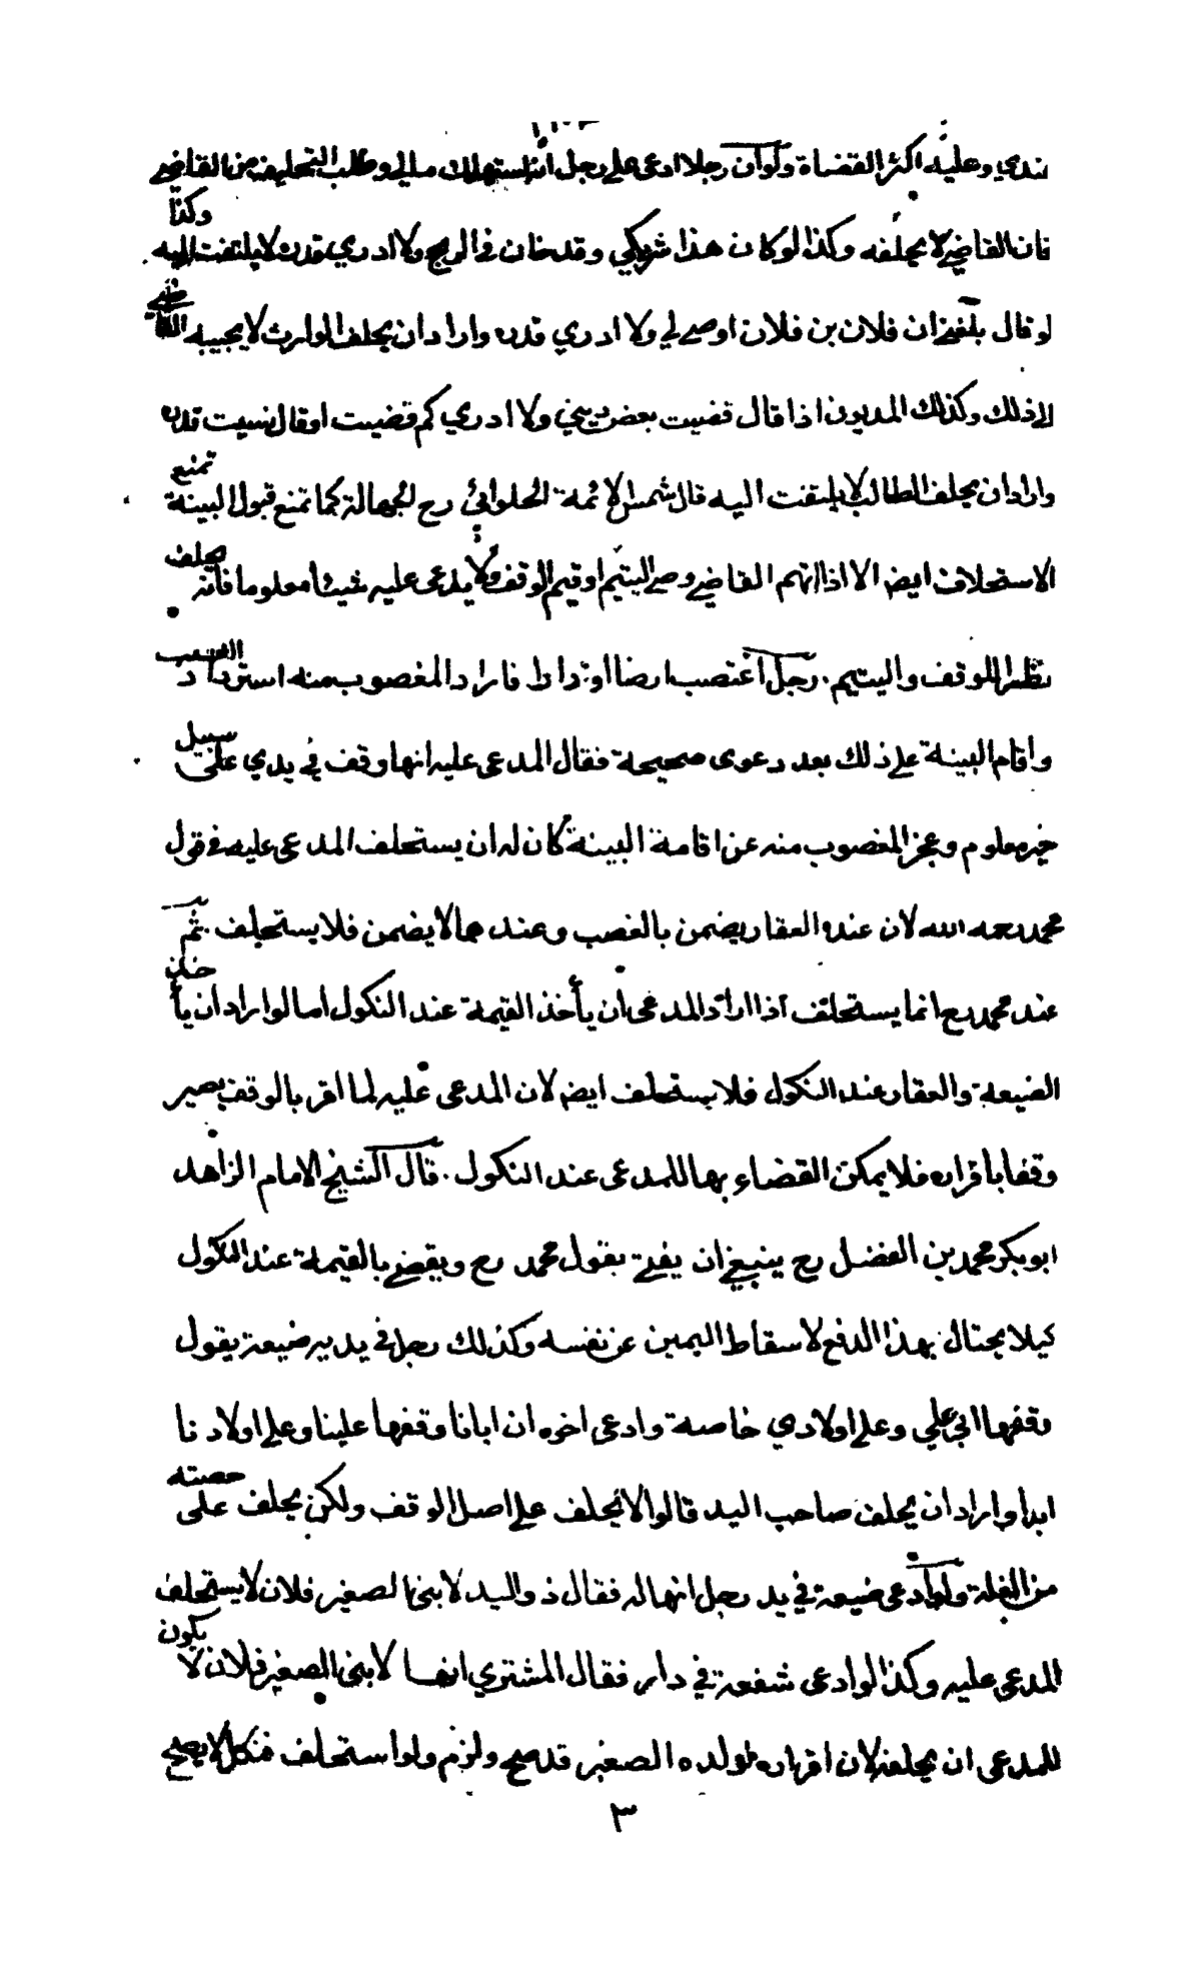 عندي وعليه اكثر القضاة ولو ان رجلا ادعى على رجل انه استهلك مالي وطلب التحليف من القاضي
فان القاضي لا يحلفه وكذا لو كان هذا شريكي وقد خان في الربح ولا ادري قدره لا يلتفت اليه وكذا
لو قال بلغني ان فلان بن فلان اوصى لي ولا ادري قدره واراد ان يحلف الوارث لا يجيبه القاضي
الى ذلك وكذلك المديون اذا قال قضيت بعض ديني ولا ادري كم قضيت او قال نسيت قدره
واراد ان يحلف الطالب لا يلتفت اليه قال شمس الائمة الحلوائي رح الجهالة كما تمنع قبول البينة تمنع
الاستحلاف ايض الا اذا اتهم القاضي وصي اليتيم او قيم الوقف ولا يدعى عليه شيئا معلوما فانه يحلف
نظرا للوقف واليتيم. رجل اغتصب ارضا او دارا فاراد المغصوب منه استرداد الغصب
واقام البينة على ذلك بعد دعوى صحيحة فقال المدعى عليه انها وقف في يدي على سبيل
خير معلوم وعجز المغصوب منه عن اقامة البينة كان له ان يستحلف المدعى عليه في قول
محمد رحمه الله لان عنده العقار يضمن بالغصب وعندهما لا يضمن فلا يستحلف. ثم
عند محمد رح انما يستحلف اذا اراد المدعى ان يأخذ القيمة عند النكول اما لو اراد ان يأ خذ
الضيعة والعقار عند النكول فلا يستحلف ايض لان المدعى عليه لما اقر بالوقف يصير
وقفا باقراره فلا يمكن القضاء بها للمدعى عند النكول. قال الشيخ الامام الزاهد
ابو بكر محمد بن الفضل رح ينبغي ان يفتى بقول محمد رح ويقضى بالقيمة عند النكول
كيلا يحتال بهذا الدفع لاسقاط اليمين عن نفسه وكذلك رجل في يديه ضيعة يقول
وقفها ابي علي وعلى اولادي خاصة وادعى اخوه ان ابانا وقفها علينا وعلى اولادنا
ابدا واراد ان يحلف صاحب اليد قالوا لا يحلف على اصل الوقف ولكن يحلف على حصته
من الغلة ولو ادعى ضيعة في يد رجل انها له فقال ذو اليد لابني الصغير فلان لا يستحلف
المدعى عليه وكذا لو ادعى شفعة في دار فقال المشتري انها لابني الصغير فلان لا يكون
للمدعى ان يحلفه لان اقراره لولده الصغير قد صح ولزم ولو استحلف فنكل لا يصح
٣